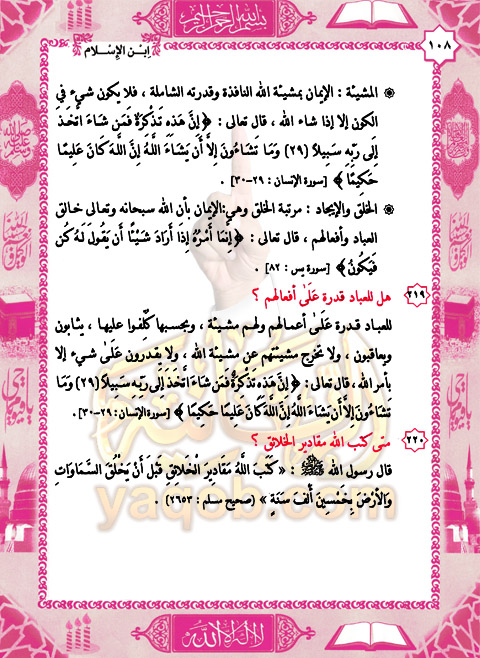 بسم الله الرحمن الرحيم
١٠٨
اِبْن الإِسْلام
۞ المشيئة : الإيمان بمشيئة الله النافذة وقدرته الشاملة ، فلا يكون شيء في
الكون إلا إذا شاء الله ، قال تعالى : ﴿ إِنَّ هَذِهِ تَذْكِرَةٌ فَمَن شَاءَ اتَّخَذَ
إِلَى رَبِّهِ سَبِيلاً (٢٩) وَمَا تَشَاءُونَ إِلاَّ أَن يَشَاءَ اللَّهُ إِنَّ اللَّهَ كَانَ عَلِيمًا
حَكِيمًا ﴾ [سورة الإنسان : ٢٩-٣٠] .
۞ الخلق والإيجاد : مرتبة الخلق وهي:الإيمان بأن الله سبحانه وتعالى خالق
العباد وأفعالهم ، قال تعالى : ﴿إِنَّمَا أَمْرُهُ إِذَا أَرَادَ شَيْئًا أَن يَقُولَ لَهُ كُن
فَيَكُونُ﴾ [سورة يس : ٨٢] .
٢١٩ هل للعباد قدرة عَلَىٰ أفعالهم ؟
للعباد قدرة عَلَىٰ أعمالهم ولهم مشيئة ، وبحسبها كُلِّفوا عليها ، يثابون
ويعاقبون ، ولا تخرج مشيئتهم عن مشيئة الله ، ولا يقدرون عَلَىٰ شيء إلا
بأمر الله ، قال تعالى: ﴿ إِنَّ هَذِهِ تَذْكِرَةٌ فَمَن شَاءَ اتَّخَذَ إِلَى رَبِّهِ سَبِيلاً (٢٩) وَمَا
تَشَاءُونَ إِلاَّ أَن يَشَاءَ اللَّهُ إِنَّ اللَّهَ كَانَ عَلِيمًا حَكِيمًا ﴾ [سورة الإنسان : ٢٩-٣٠] .
٢٢٠ متى كتب الله مقادير الخلائق ؟
قال رسول الله ﷺ : « كَتَبَ اللَّهُ مَقَادِيرَ الْخَلائِقِ قَبْلَ أَنْ يَخْلُقَ السَّمَاوَاتِ
وَالأَرْضَ بِخَمْسِينَ أَلْفَ سَنَةٍ » (صحيح مسلم : ٢٦٥٣) .
yaqob.com
لا إله إلا الله